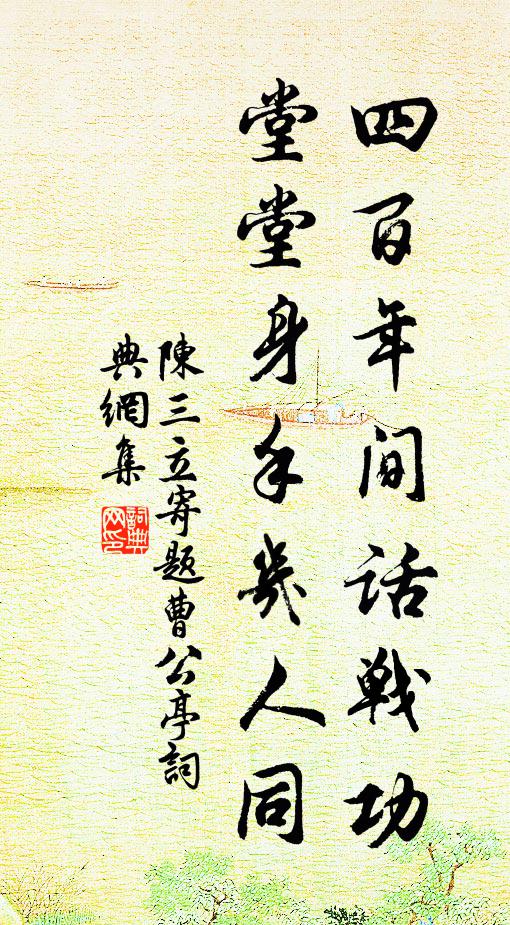 四百年間話戰功
堂堂身手幾人同
陳三立寄題曹公亭詞
典網集
詞典网印